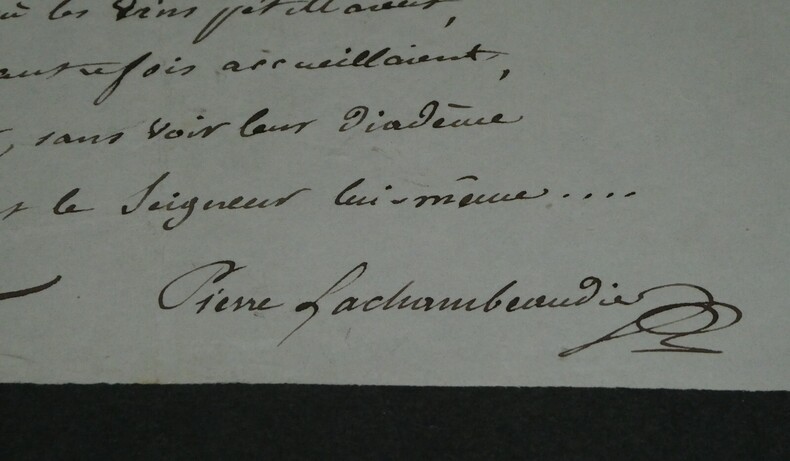 où les vins pétillaient,
autrefois accueillaient,
, sans voir leur diadême
t le Seigneur lui-même....
Pierre Lachambeaudie